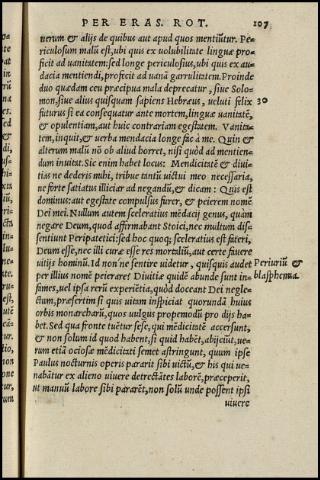 PER ERAS. ROT. 107
uerum & alijs de quibus aut apud quos mentiūtur. Pe-
riculosum malū est, ubi quis ex uolubilitate linguæ pro-
ficit ad uanitatem: sed longe periculosius, ubi quis ex au-
dacia mentiendi, proficit ad uanā garrulitatem. Proinde
duo quædam ceu præcipua mala deprecatur, siue Solo-
mon, siue alius quispiam sapiens Hebræus, ueluti felix 30
futurus si ea consequantur ante mortem, linguæ uanitatē,
& opulentiam, aut huic contrariam egestatem. Vanita-
tem, inquit, & uerba mendacia longe fac à me. Quin &
alterum malū nō ob aliud horret, nisi quòd ad mentien-
dum inuitat. Sic enim habet locus: Mendicitatē & diui-
tias ne dederis mihi, tribue tantū uictui meo necessaria,
ne forte satiatus illiciar ad negandū, & dicam: Quis est
dominus: aut egestate compulsus furer, & peierem nomē
Dei mei. Nullum autem sceleratius mēdacij genus, quàm
negare Deum, quod affirmabant Stoici, nec multum dis-
sentiunt Peripatetici: sed hoc quoq; sceleratius est fateri,
Deum esse, nec illi curæ esse res mortaliū, aut certe fauere
uitijs hominū. Id non ne sentire uidetur, quisquis audet Periuriū &
per illius nomē peierare? Diuitiæ quidē abunde sunt in- blasphemia.
fames, uel ipsa rerū experiētia, quòd doceant Dei negle-
ctum, præsertim si quis uitam inspiciat quorundā huius
orbis monarcharū, quos uulgus propemodū pro dijs ha-
bet. Sed qua fronte tuētur sese, qui mēdicitatē accersunt,
& non solum id quod habent, si quid habēt, abijciūt, ue-
rum etiā ociosæ mēdicitati semet astringunt, quum ipse
Paulus nocturnis operis pararit sibi uictū, & his qui ue-
nabātur ex alieno uiuere detrectātes laborē, præceperit,
ut manuū labore sibi pararēt, non solū unde possent ipsi
uiuere